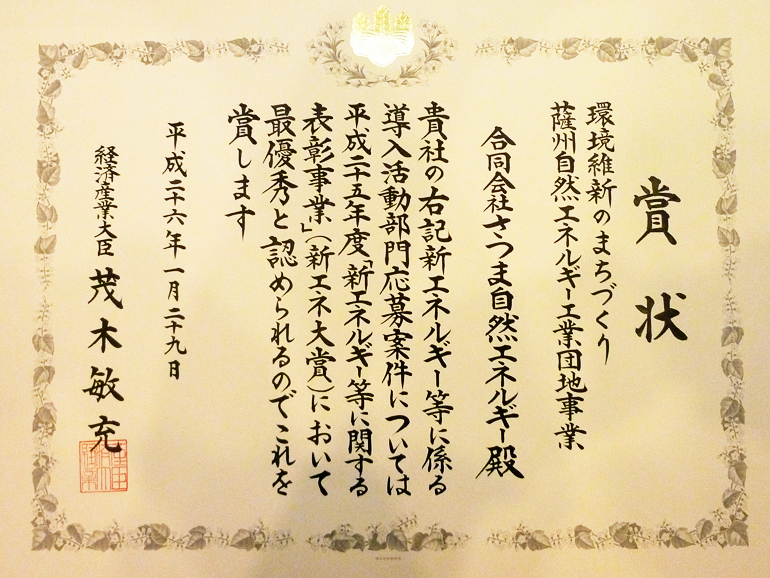 賞状
環境維新のまちづくり
薩州自然エネルギー工業団地事業
合同会社さつま自然エネルギー殿
貴社の右記新エネルギー等に係る
導入活動部門応募案件については
平成二十五年度「新エネルギー等に関する
表彰事業」(新エネ大賞)において
最優秀と認められるのでこれを
賞します
平成二十六年一月二十九日
経済産業大臣 茂木敏充